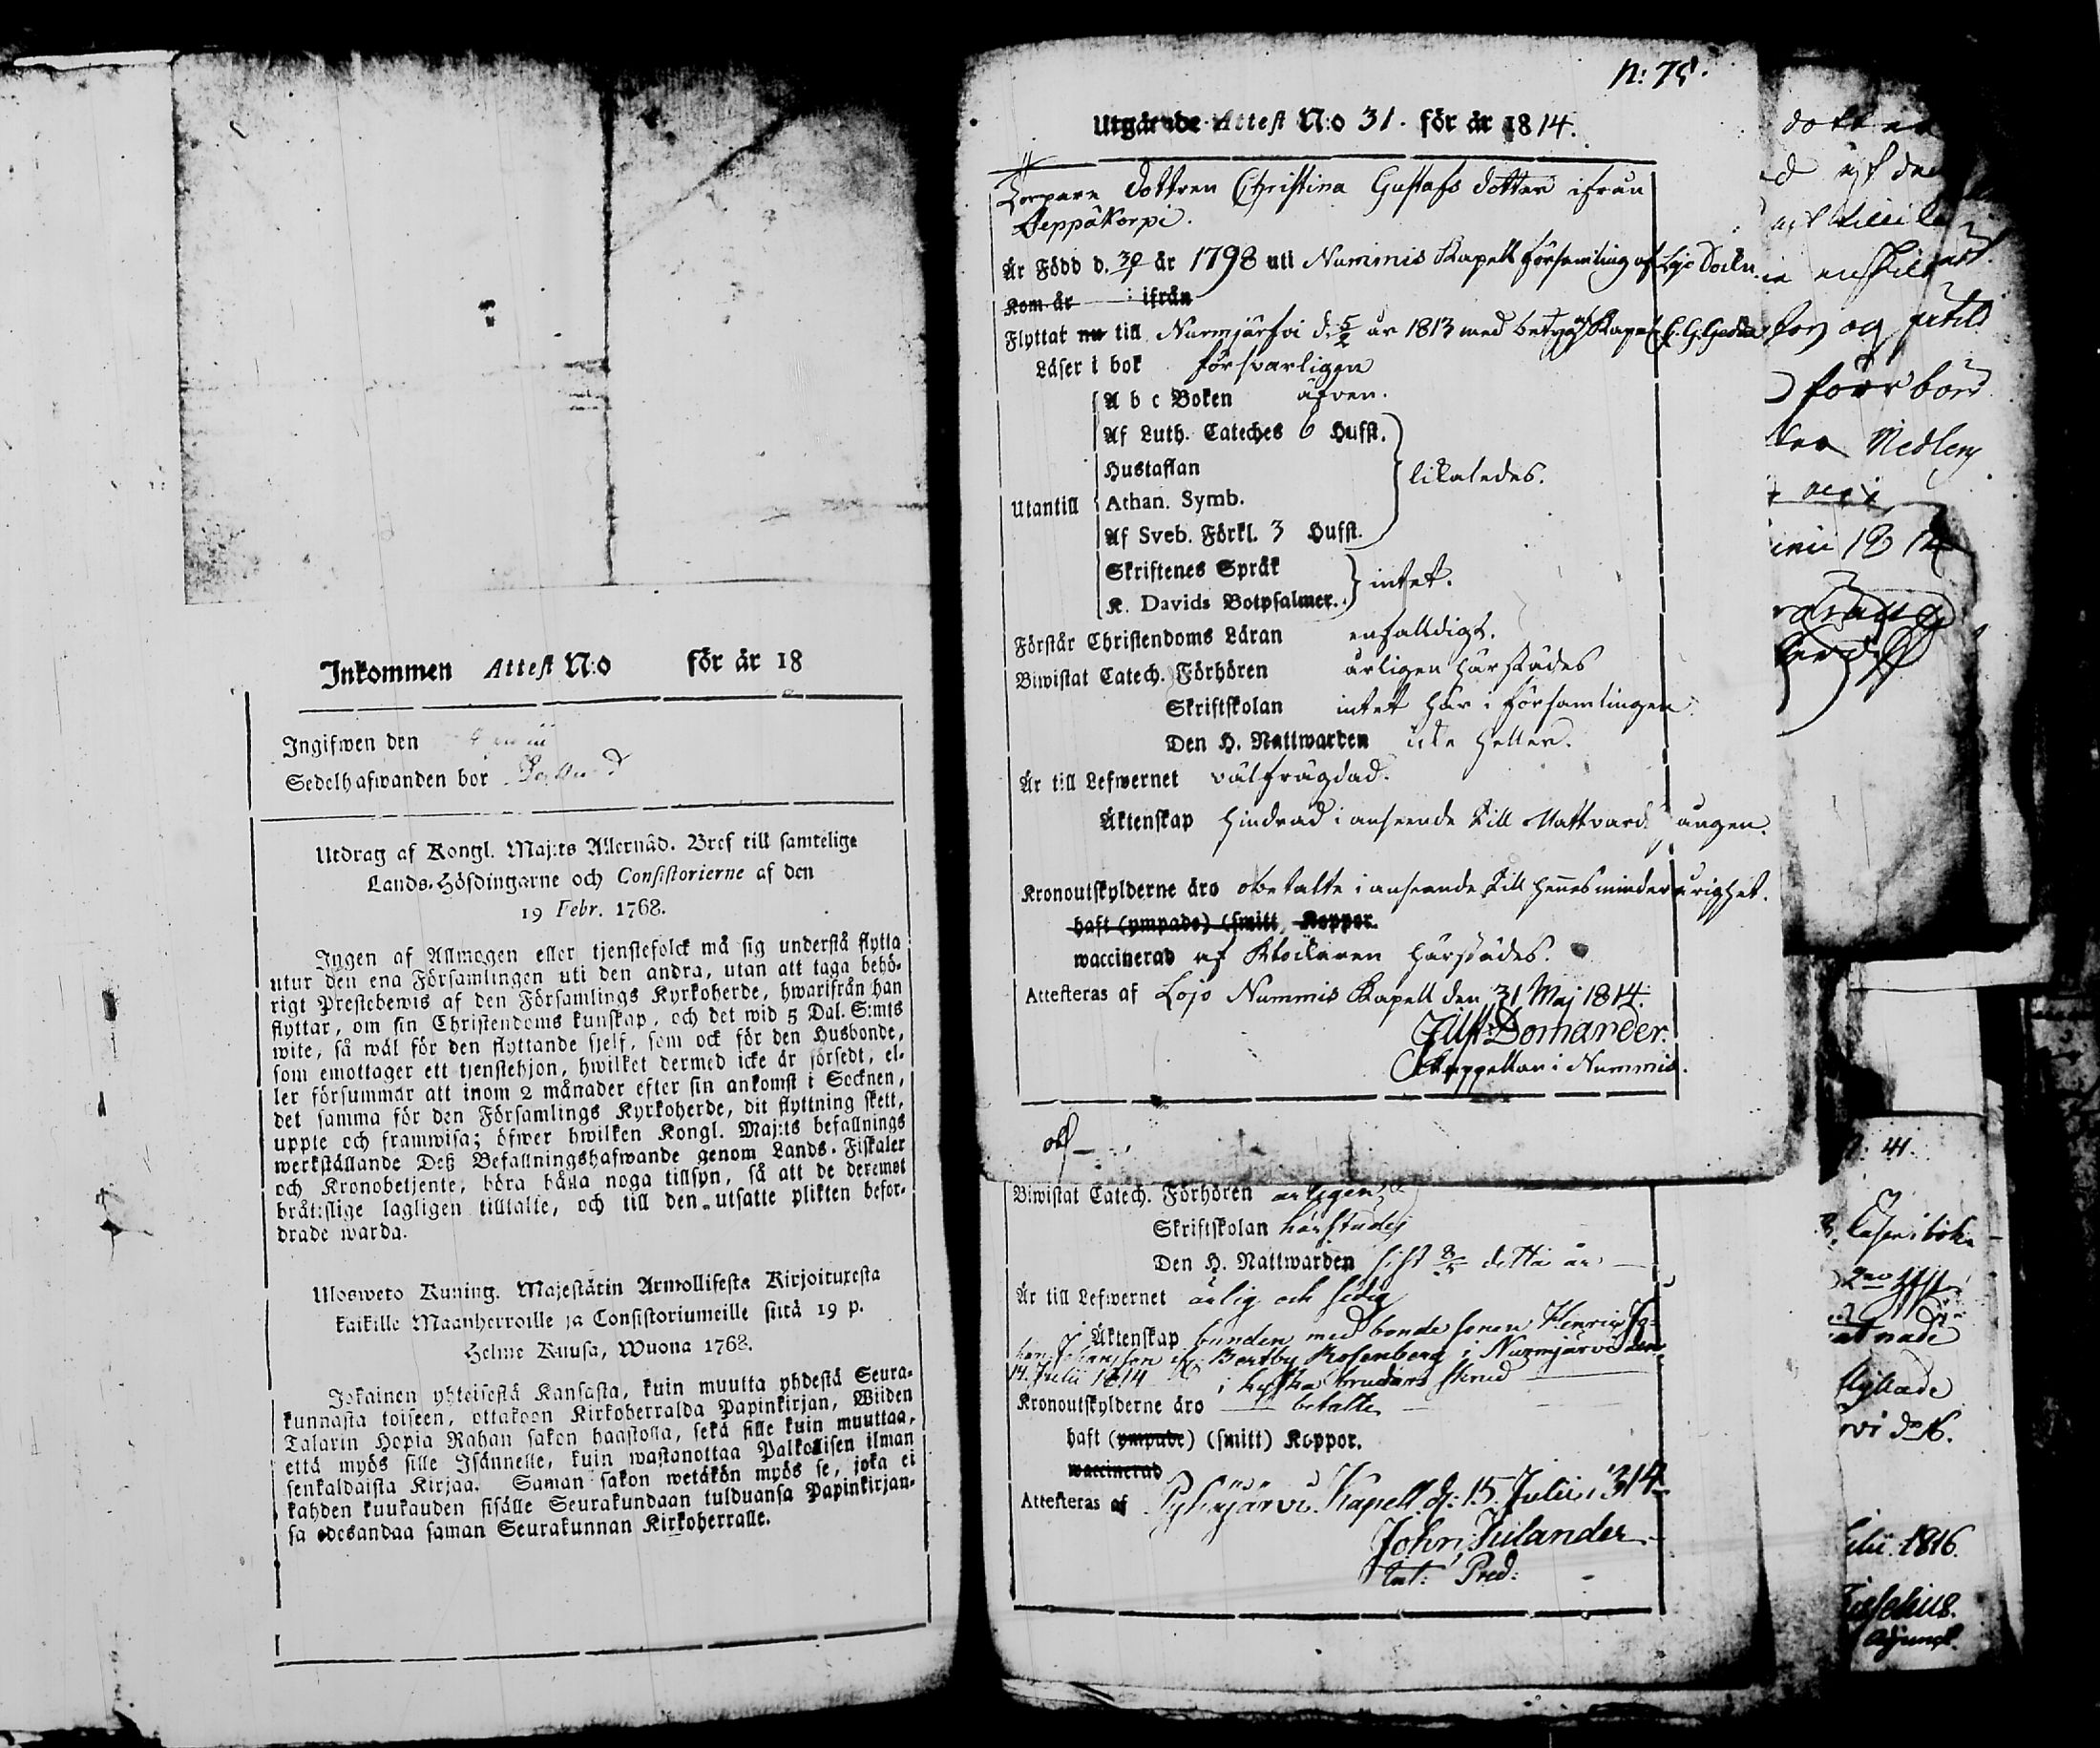 Inkommen Attest N:o för år 18
Ingifwen den
Sedelhafwanden bor
Utdrag af Kongl. Maj:ts Allernåd. Bref till samtelige
Lands-Höfdingarne och Consistorierne af den
19 Febr. 1768.
Ingen af Allmogen eller tjenstefolck må sig understå flytta
utur den ena Församlingen uti den andra, utan att taga behö-
rigt Prestebewis af den Församlings Kyrkoherde, hwarifrån han
flyttar, om sin Christendoms kunskap, och det wid 5 Dal. S:mts
wite, så wäl för den flyttande sjelf, som ock för den Husbonde,
som emottager ett tjenstehjon, hwilket dermed icke är försedt, el-
ler försummar att inom 2 månader efter sin ankomst i Socknen,
det samma för den Församlings Kyrkoherde, dit flyttning skett,
uppte och framwisa; öfwer hwilken Kongl. Maj:ts befallnings
werkställande Deß Befallningshafwande genom Lands-Fiskaler
och Kronobetjente, böra hålla noga tillsyn, så att de deremot
bråttslige lagligen tilltalte, och till den utsatte plikten befor-
drade warda.
Uloswero Kuning. Majestätin Armollisesta Kirjoituxesta
kaikille Maanherroille ja Consistoriumeille siitä 19 p.
Helme Kuusa, Wuona 1768.
Jokainen yhteisestä Kansasta, kuin muutta yhdestä Seura-
kunnasta toiseen, ottakoon Kirkoherralda Papinkirjan, Wiiden
Talarin Hopia Rahan sakon haastolla, sekä sille kuin muuttaa,
että myös sille Isännelle, kuin wastanottaa Palkollisen ilman
senkaldaista Kirjaa. Saman sakon wetäkön myös se, joka ei
kahden kuukauden sisälle Seurakundaan tulduansa Papinkirjan-
sa edesandaa saman Seurakunnan Kirkoherralle.
N: 75.
Utgående Attest N:o 31. för år 1814.
Torpare dottren Christina Gustafs dotter ifrån
Seppäkorpi.
Är Född d. 30 år 1798 uti Nummis Kapell församling af Lojo Sockn.
Kom år ifrån
Flyttat nu till Nurmijärfvi d. 5/2 år 1813 med betyg af Kapel. C. G.
Läser i bok försvarligen
A b c Boken äfven.
Af Luth. Cateches 6 Hufst.
Hustaflan likaledes.
Utantill Athan. Symb.
Af Sveb. Förkl. 3 Hufst.
Skriftenes Språk
K. Davids Botpsalmer. intet.
Förstår Christendoms Läran enfalldigt.
Biwistat Catech. Förhören årligen härstädes
Skriftskolan intet här i församlingen.
Den H. Nattwarden icke heller.
Är till Lefwernet välfrägdad.
Äktenskap hindrad i anseende till Nattvards gången.
Kronoutskylderne äro obetalte i anseende till hennes minderårighet.
haft (ympade) (smitt) Koppor.
waccinerad af Klockaren härstädes.
Attesteras af Lojo Nummis Kapell den 31 Maj 1814.
Gust. Domander.
Kappellan i Nummis.
Biwistat Catech. Förhören årligen
Skriftskolan härstädes
Den H. Nattwarden sist 8/5 detta år
Är till Lefwernet ärlig och sedig
Äktenskap bunden med bonde sonen Henric
Bertby Rosenberg i Nurmijärvi den
14. Julii 1814 i brudars skrud
Kronoutskylderne äro betalte
haft (ympade) (smitt) Koppor.
waccinerad
Attesteras af Pyhäjärvi Kapell d: 15 Julii 1814
John Julander
Pred:
N: 41.
Läser i boken
1816.